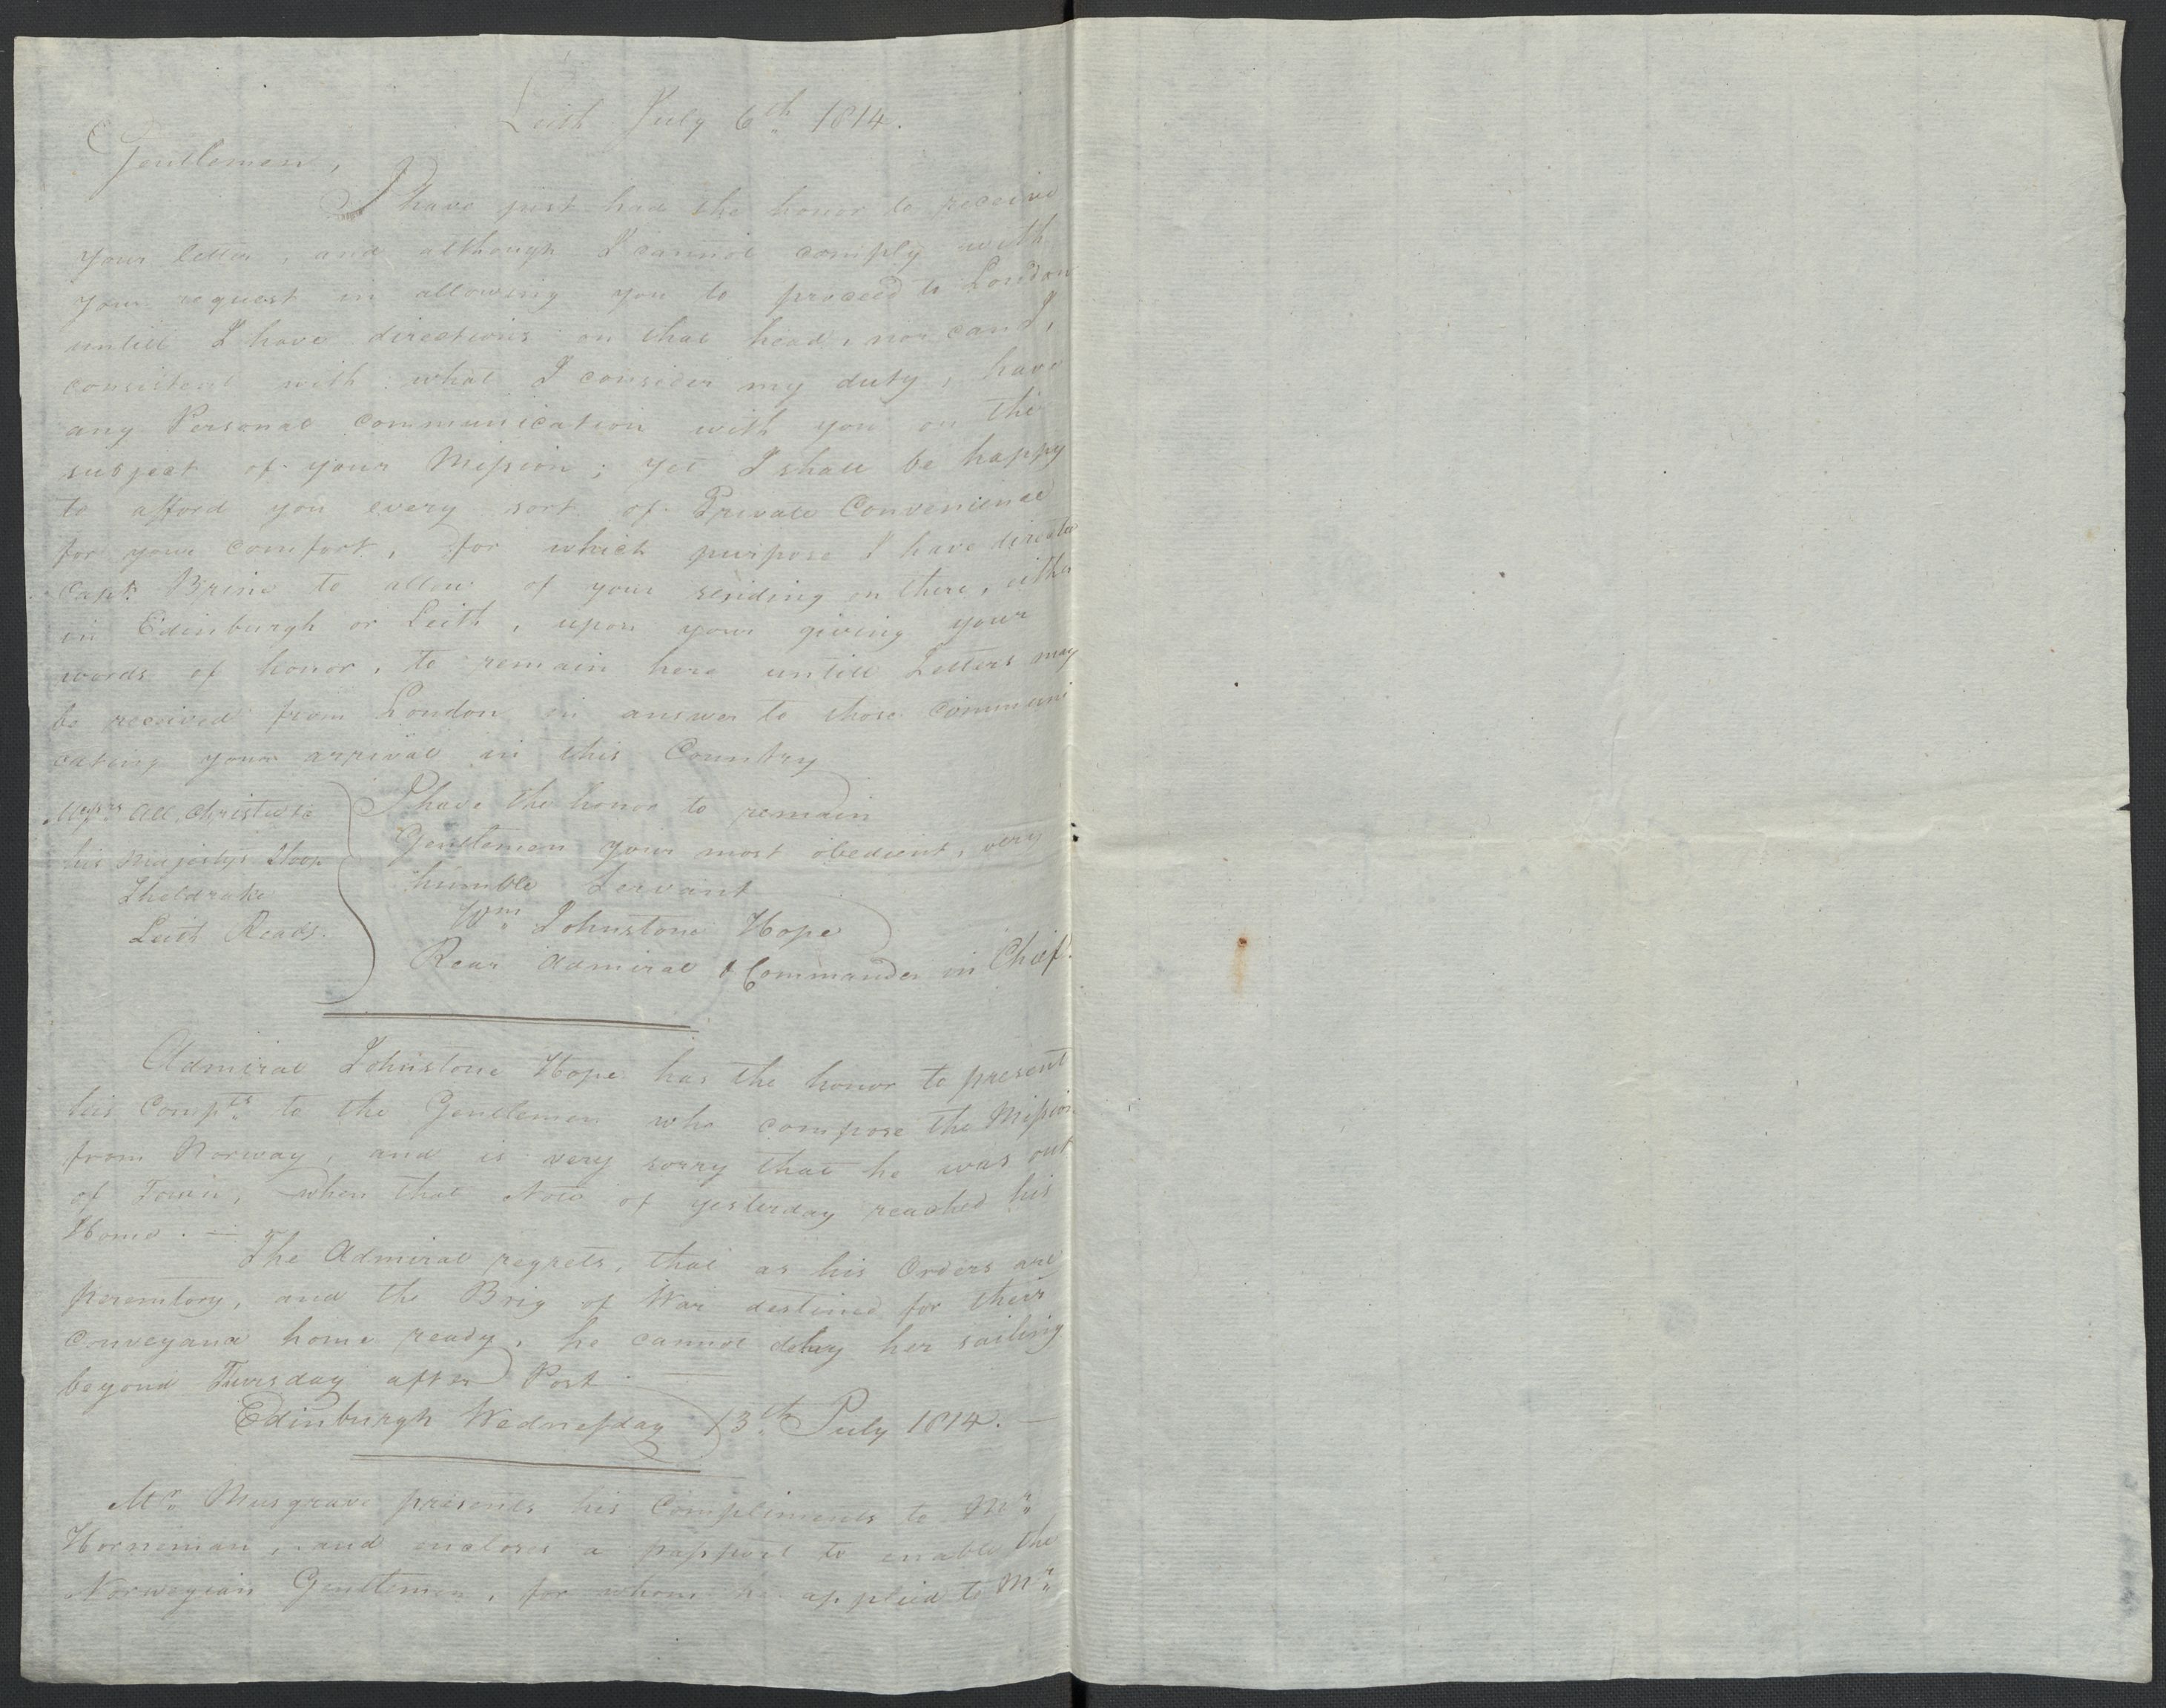 Leith July 6th 1814.
Gentlemen,
I have just had the honor to receive
your letter, and although I cannot comply with
your request in allowing you to proceed to London
untill I have directions on that head, nor can I,
consistent with what I consider my duty, have
any Personal communication with you on the
subject of your Mission; yet I shall be happy
to afford you every sort of Private Convenience
for your comfort, for which purpose I have directed
Capt. Brine to allow of your residing on there, either
in Edinburgh or Leith, upon your giving your
words of honor, to remain here untill Letters may
be received from London in answer to those communi
cating your arrival in this Country
I have the honor to remain
Gentlemen your most obedient, very
humble Servant
Wm Johnstone Hope
Rear Admiral & Commander in Chief.
Messrs All, Christie &c
his Majestys Sloop
Sheldrake
Leith Roads.
Admiral Johnstone Hope has the honor to present
his Compts to the Gentlemen who compose the Mission
from Norway, and is very sorry that he was out
of Town, when that Note of yesterday reached his
Home. —
The Admiral regrets, that as his Orders are
peremtory, and the Brig of War destined for their
conveyance home ready, he cannot delay her sailing
beyond Tuesday after Post. —
Edinburgh Wednesday 13th July 1814. —
Mr. Musgrave presents his Compliments to Mr.
Horneman, and incloses a passport to enable the
Norwegian Gentlemen, for whom he applied to Mr.